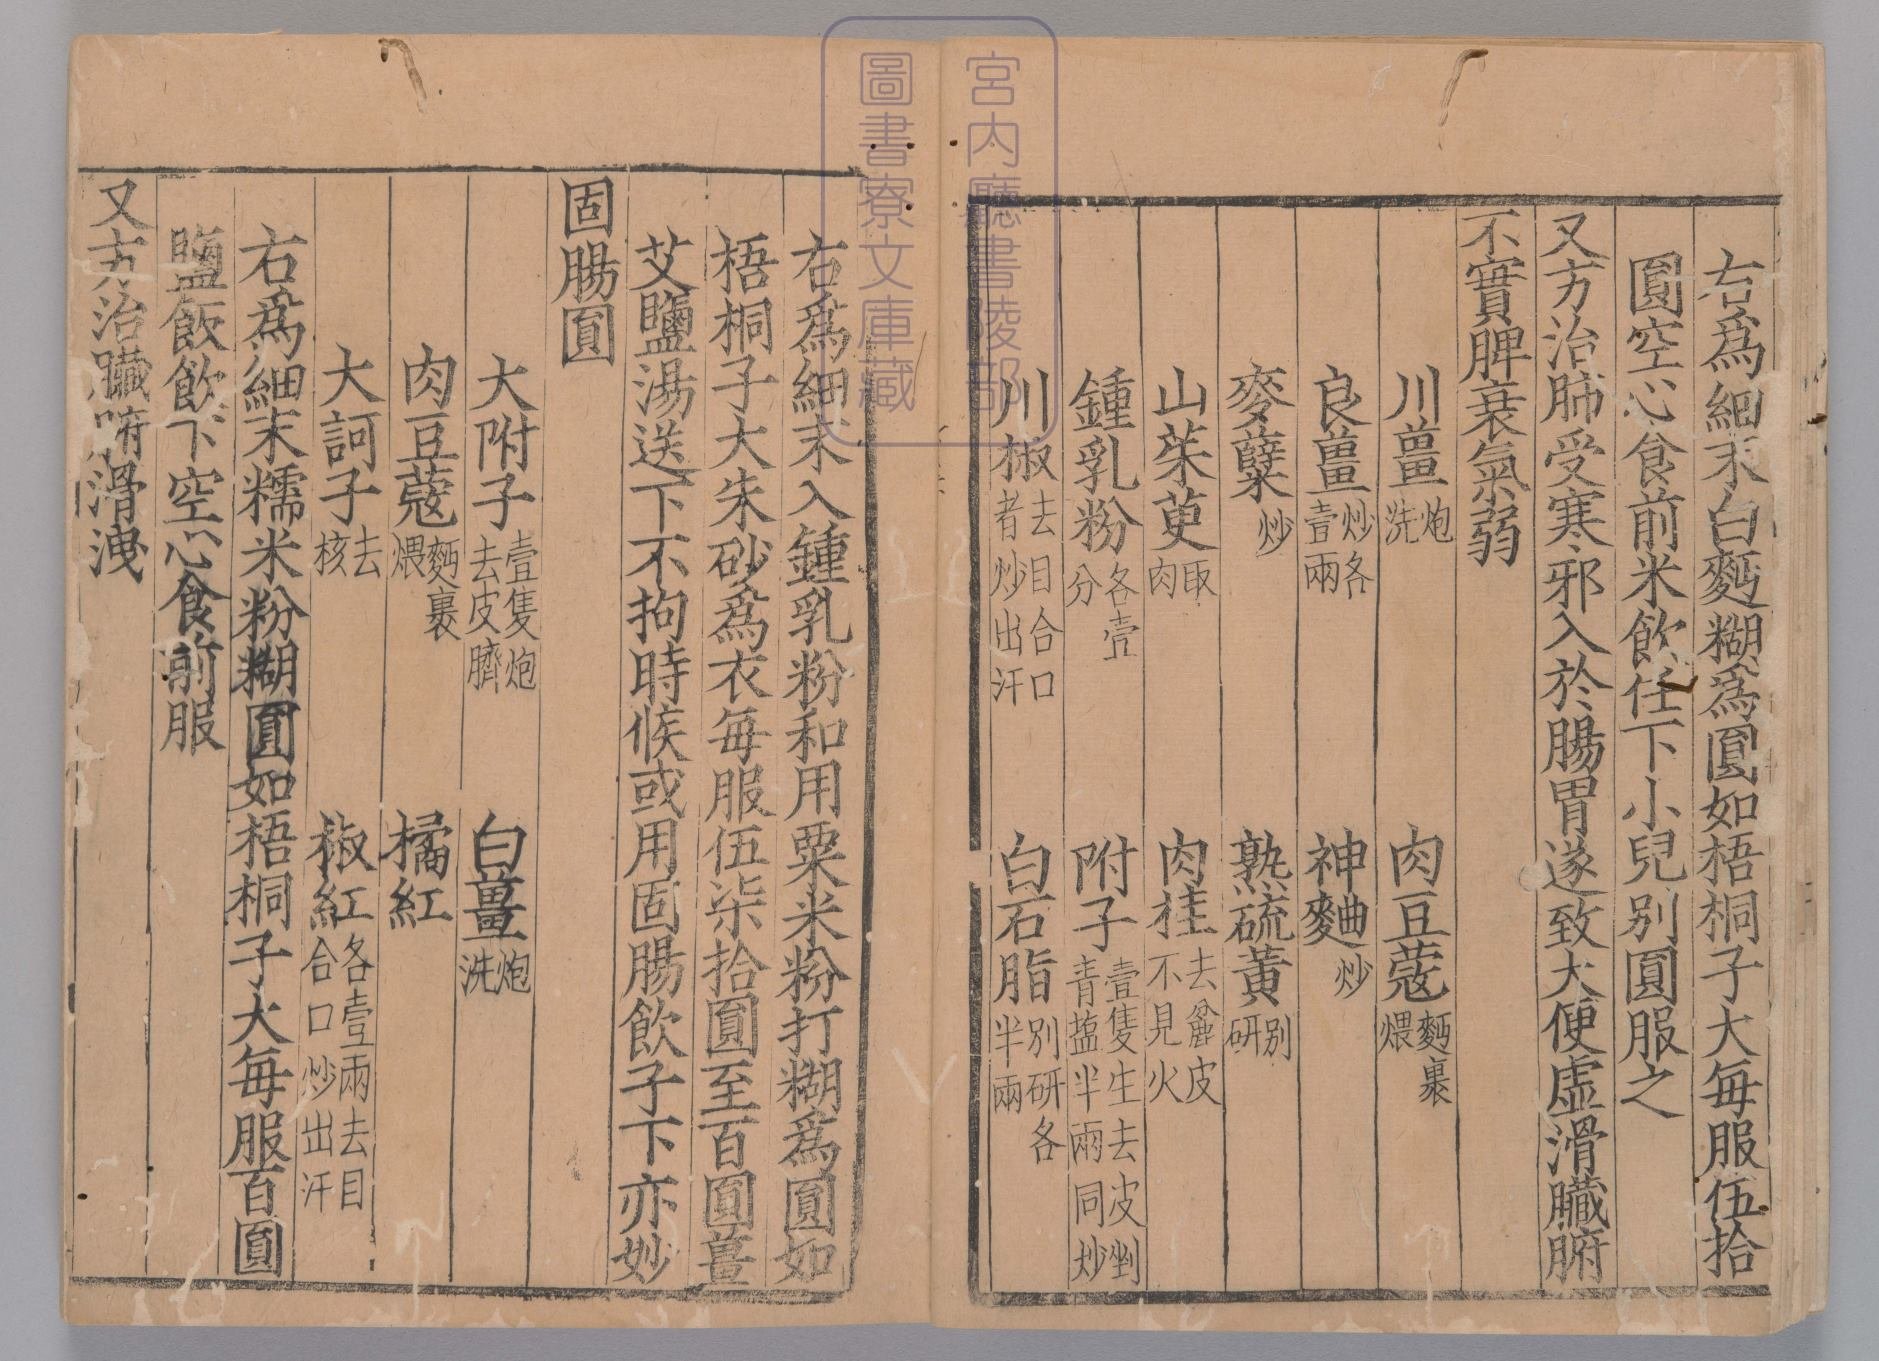 右爲細末白麪糊爲圓如梧桐子大每服伍拾
圓空心食前米飲任下小兒別圓服之
又方治肺受寒邪入於腸胃遂致大便虛滑臟腑
不實脾衰氣弱
川薑炮洗 肉豆蔻麪裹煨
良薑炒各壹兩 神麯炒
麥蘖炒 熟硫黃別研
山茱萸取肉 肉桂去麄皮不見火
鍾乳粉各壹分 附子壹隻生去皮剉青鹽半兩同炒
川椒去目合口者炒出汗 白石脂別研各半兩
右爲細末入鍾乳粉和用粟米粉打糊爲圓如
梧桐子大朱砂爲衣每服伍柒拾圓至百圓薑
艾鹽湯送下不拘時候或用固腸飲子下亦妙
固腸圓
大附子壹隻炮去皮臍 白薑炮洗
肉豆蔻麪裹煨 橘紅
大訶子去核 椒紅各壹兩去目合口炒出汗
右爲細末糯米粉糊圓如梧桐子大每服百圓
鹽飯飲下空心食前服
又方治臟腑滑洩
宮內廳書陵部
圖書寮文庫藏